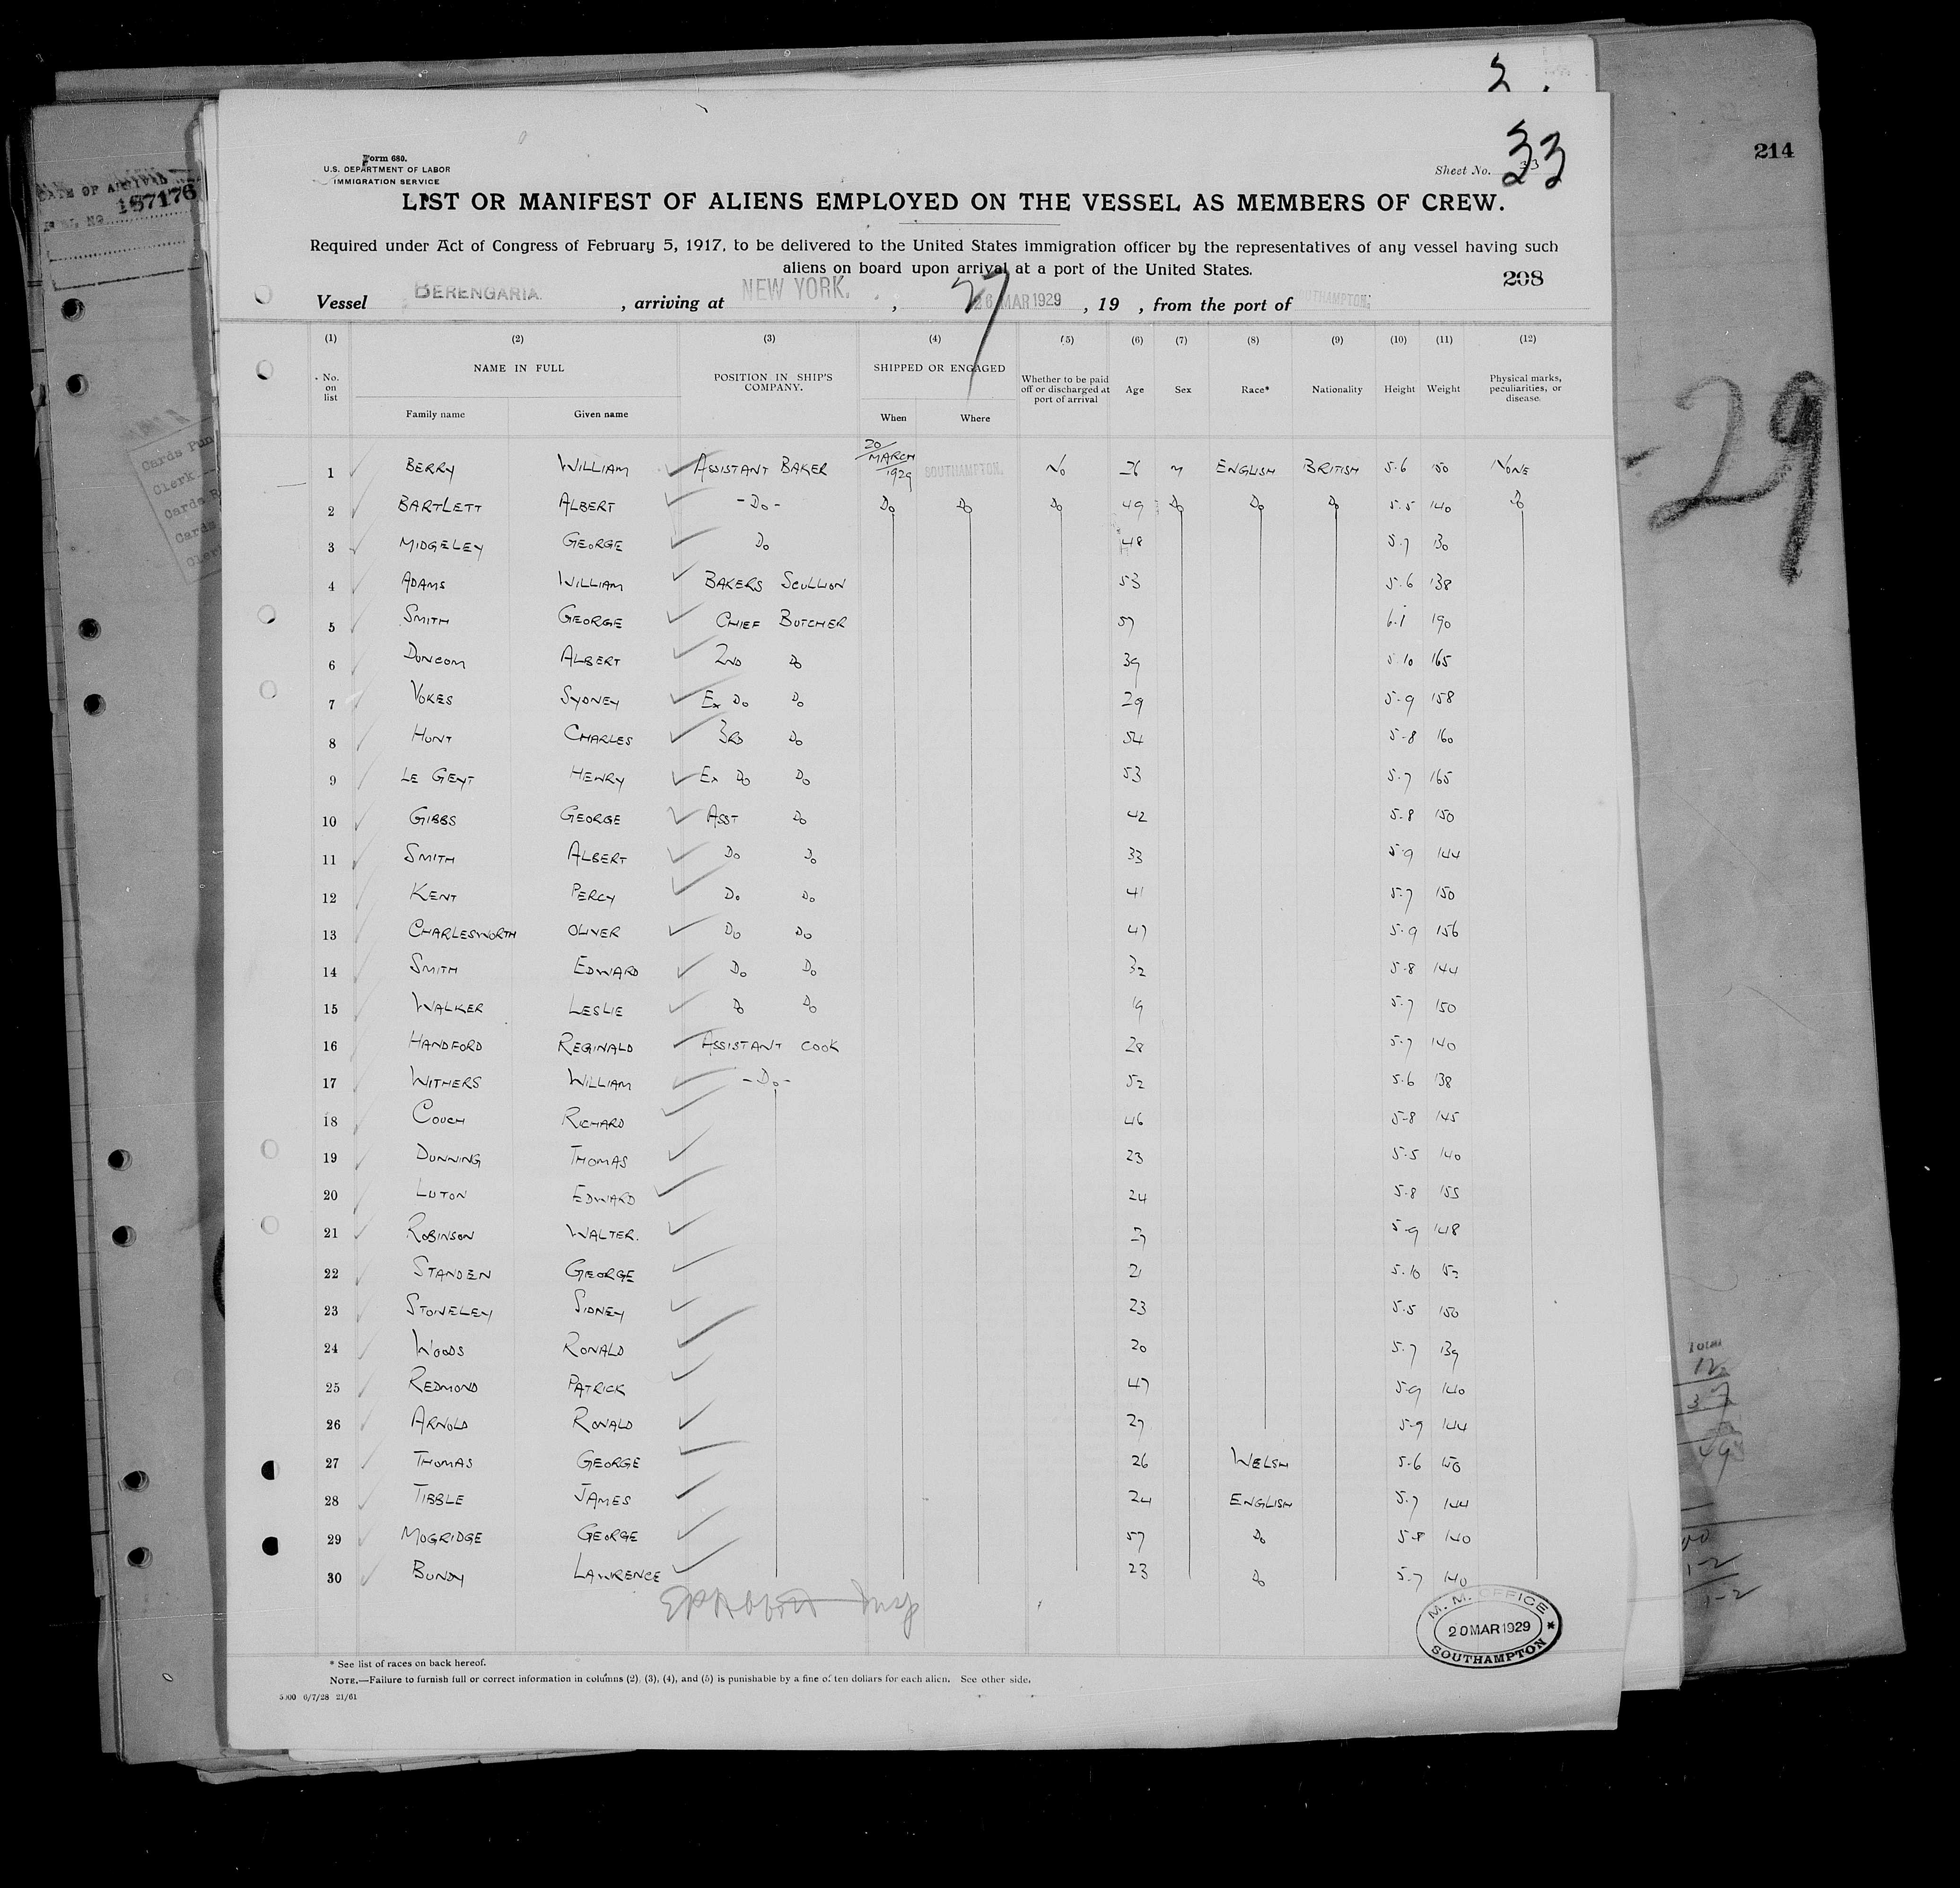 214
33
DATE OF ARRIVAL
187176
Form 680.
U.S. DEPARTMENT OF LABOR
IMMIGRATION SERVICE
Sheet No. 33
LIST OR MANIFEST OF ALIENS EMPLOYED ON THE VESSEL AS MEMBERS OF CREW.
Required under Act of Congress of February 5, 1917, to be delivered to the United States immigration officer by the representatives of any vessel having such
aliens on board upon arrival at a port of the United States.
208
Vessel BERENGARIA. , arriving at NEW YORK. , 27 26 MAR 1929 , 19 , from the port of SOUTHAMPTON.
(1) (2) (3) (4) (5) (6) (7) (8) (9) (10) (11) (12)
No. on list NAME IN FULL POSITION IN SHIP'S COMPANY. SHIPPED OR ENGAGED Whether to be paid off or discharged at port of arrival Age Sex Race* Nationality Height Weight Physical marks, peculiarities, or disease.
Family name Given name When Where
1 BERRY WILLIAM ASSISTANT BAKER 20/MARCH/1929 SOUTHAMPTON. No 26 M ENGLISH BRITISH 5.6 150 NONE
2 BARTLETT ALBERT -Do- Do Do Do 49 Do Do Do 5.5 140 Do
3 MIDGELEY GEORGE Do 48 5.7 130
4 ADAMS WILLIAM BAKERS SCULLION 53 5.6 138
5 SMITH GEORGE CHIEF BUTCHER 57 6.1 190
6 DUNCOM ALBERT 2ND Do 39 5.10 165
7 VOKES SYDNEY Ex Do Do 29 5.9 158
8 HUNT CHARLES 3RD Do 54 5.8 160
9 LE GEYT HENRY Ex Do Do 53 5.7 165
10 GIBBS GEORGE ASST Do 42 5.8 150
11 SMITH ALBERT Do Do 33 5.9 144
12 KENT PERCY Do Do 41 5.7 150
13 CHARLESWORTH OLIVER Do Do 47 5.9 156
14 SMITH EDWARD Do Do 32 5.8 144
15 WALKER LESLIE Do Do 19 5.7 150
16 HANDFORD REGINALD ASSISTANT COOK 28 5.7 140
17 WITHERS WILLIAM -Do- 52 5.6 138
18 COUCH RICHARD 46 5.8 145
19 DUNNING THOMAS 23 5.5 140
20 LUTON EDWARD 24 5.8 155
21 ROBINSON WALTER. 5.9 148
22 STANDEN GEORGE 21 5.10
23 STONELEY SIDNEY 23 5.5 150
24 WOODS RONALD 20 5.7 139
25 REDMOND PATRICK 47 5.9 140
26 ARNOLD RONALD 27 5.9 144
27 THOMAS GEORGE 26 WELSH 5.6 150
28 TIBBLE JAMES 24 ENGLISH 5.7 144
29 MOGRIDGE GEORGE 57 Do 5.8 140
30 BUNDY LAWRENCE 23 Do 5.7 140
M. M. OFFICE
20 MAR 1929
SOUTHAMPTON
* See list of races on back hereof.
NOTE.—Failure to furnish full or correct information in columns (2), (3), (4), and (5) is punishable by a fine of ten dollars for each alien. See other side.
5000 6/7/28 21/61
-29